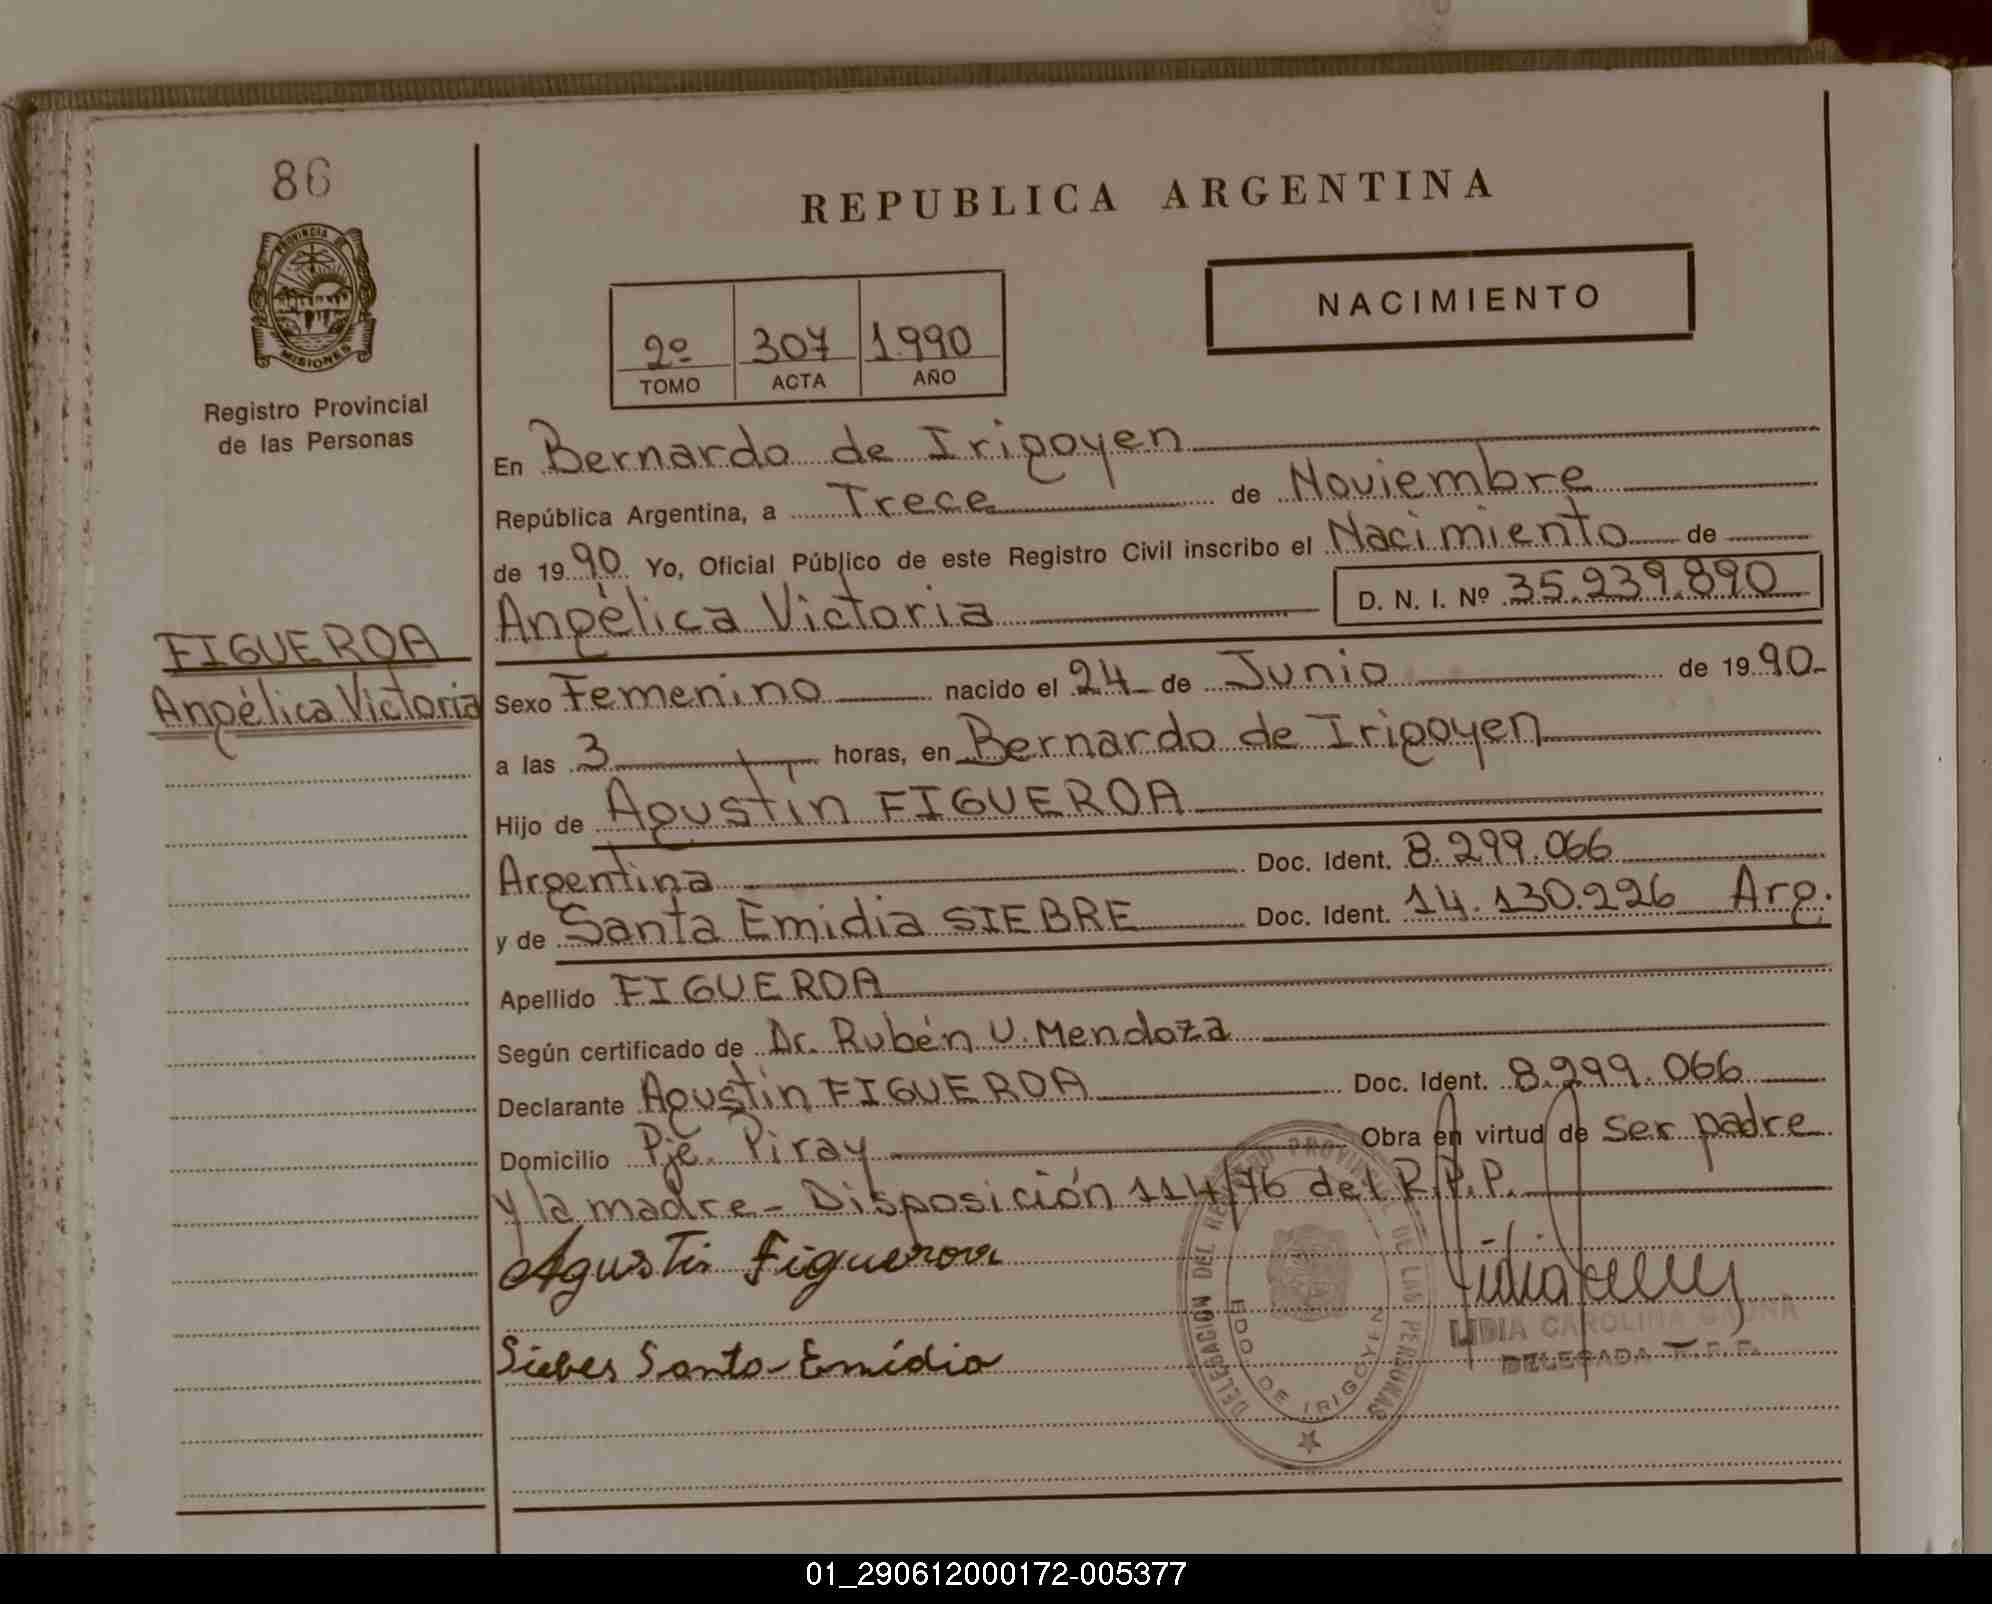 86
PROVINCIA DE
MISIONES
Registro Provincial
de las Personas
FIGUEROA
Angélica Victoria
REPUBLICA ARGENTINA
NACIMIENTO
2º 307 1990
TOMO ACTA AÑO
En Bernardo de Irigoyen
República Argentina, a Trece de Noviembre
de 1990 Yo, Oficial Público de este Registro Civil inscribo el Nacimiento de
Angélica Victoria D. N. I. Nº 35.239.890
Sexo Femenino nacido el 24 de Junio de 1990
a las 3 horas, en Bernardo de Irigoyen
Hijo de Agustín FIGUEROA
Argentina Doc. Ident. 8.299.066
y de Santa Emidia SIEBRE Doc. Ident. 14.130.226 Arg.
Apellido FIGUEROA
Según certificado de Dr. Rubén U. Mendoza
Declarante Agustín FIGUEROA Doc. Ident. 8.299.066
Domicilio Pje. Piray Obra en virtud de ser padre
y la madre - Disposición 114/76 del R.P.P.
Agustin Figueroa
Siebes Santa-Emídia
DELEGACIÓN DEL REGISTRO PROVINCIAL DE LAS PERSONAS
BDO DE IRIGOYEN
LIDIA CAROLINA GAUNA
DELEGADA R.P.P.
01_290612000172-005377